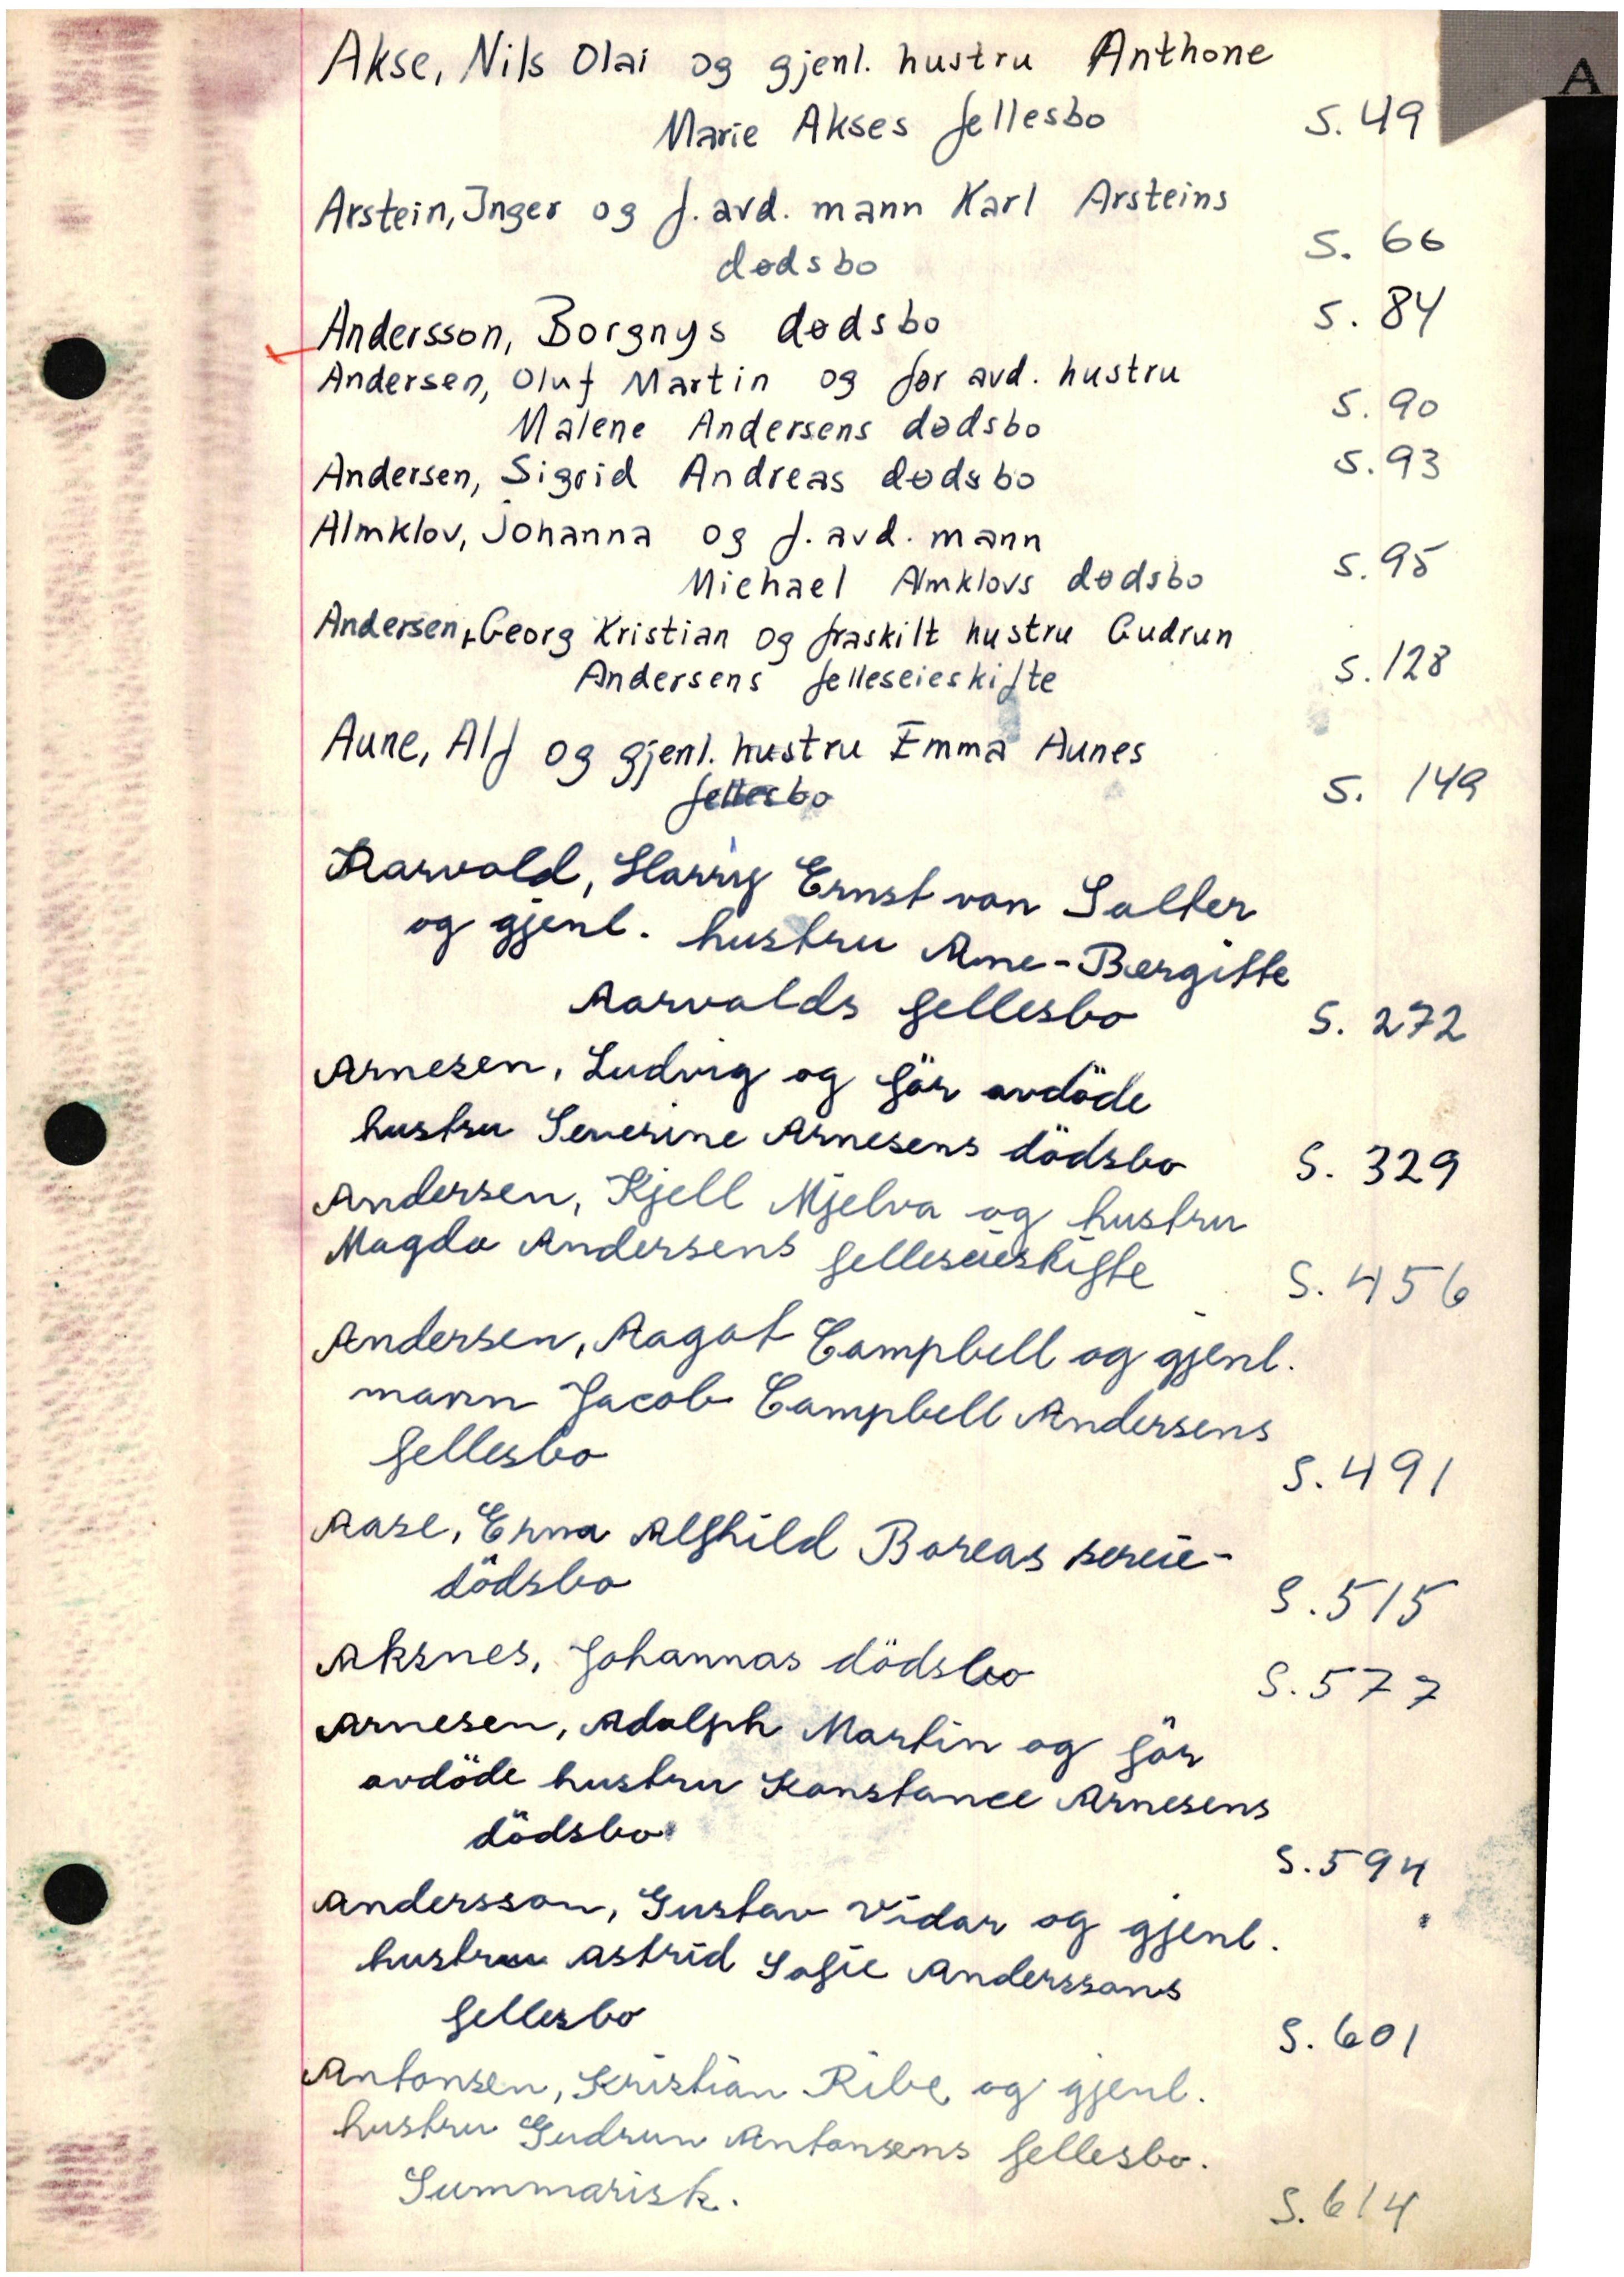 A
Akse, Nils Olai og gjenl. hustru Anthone
Marie Akses fellesbo S. 49
Arstein, Inger og f. avd. mann Karl Arsteins
dødsbo S. 66
Andersson, Borgnys dødsbo S. 84
Andersen, Oluf Martin og før avd. hustru
Malene Andersens dødsbo S. 90
Andersen, Sigrid Andreas dødsbo S. 93
Almklov, Johanna og f. avd. mann
Michael Almklovs dødsbo S. 95
Andersen, Georg Kristian og fraskilt hustru Gudrun
Andersens felleseieskifte S. 128
Aune, Alf og gjenl. hustru Emma Aunes
fellesbo S. 149
Aarvold, Harry Ernst von Salter
og gjenl. hustru Ane-Bergitte
Aarvolds fellesbo S. 272
Arnesen, Ludvig og för avdöde
hustru Severine Arnesens dödsbo S. 329
Andersen, Kjell Mjelva og hustru
Magda Andersens felleseieskifte S. 456
Andersen, Aagot Campbell og gjenl.
mann Jacob Campbell Andersens
fellesbo S. 491
Aase, Erna Alfhild Boreas sereie-
dödsbo S. 515
Aksnes, Johannas dödsbo S. 577
Arnesen, Adolph Martin og för
avdöde hustru Konstance Arnesens
dödsbo S. 594
Andersson, Gustav Vidar og gjenl.
hustru Astrid Sofie Anderssons
fellesbo S. 601
Antonsen, Kristian Ribe og gjenl.
hustru Gudrun Antonsens fellesbo.
Summarisk. S. 614